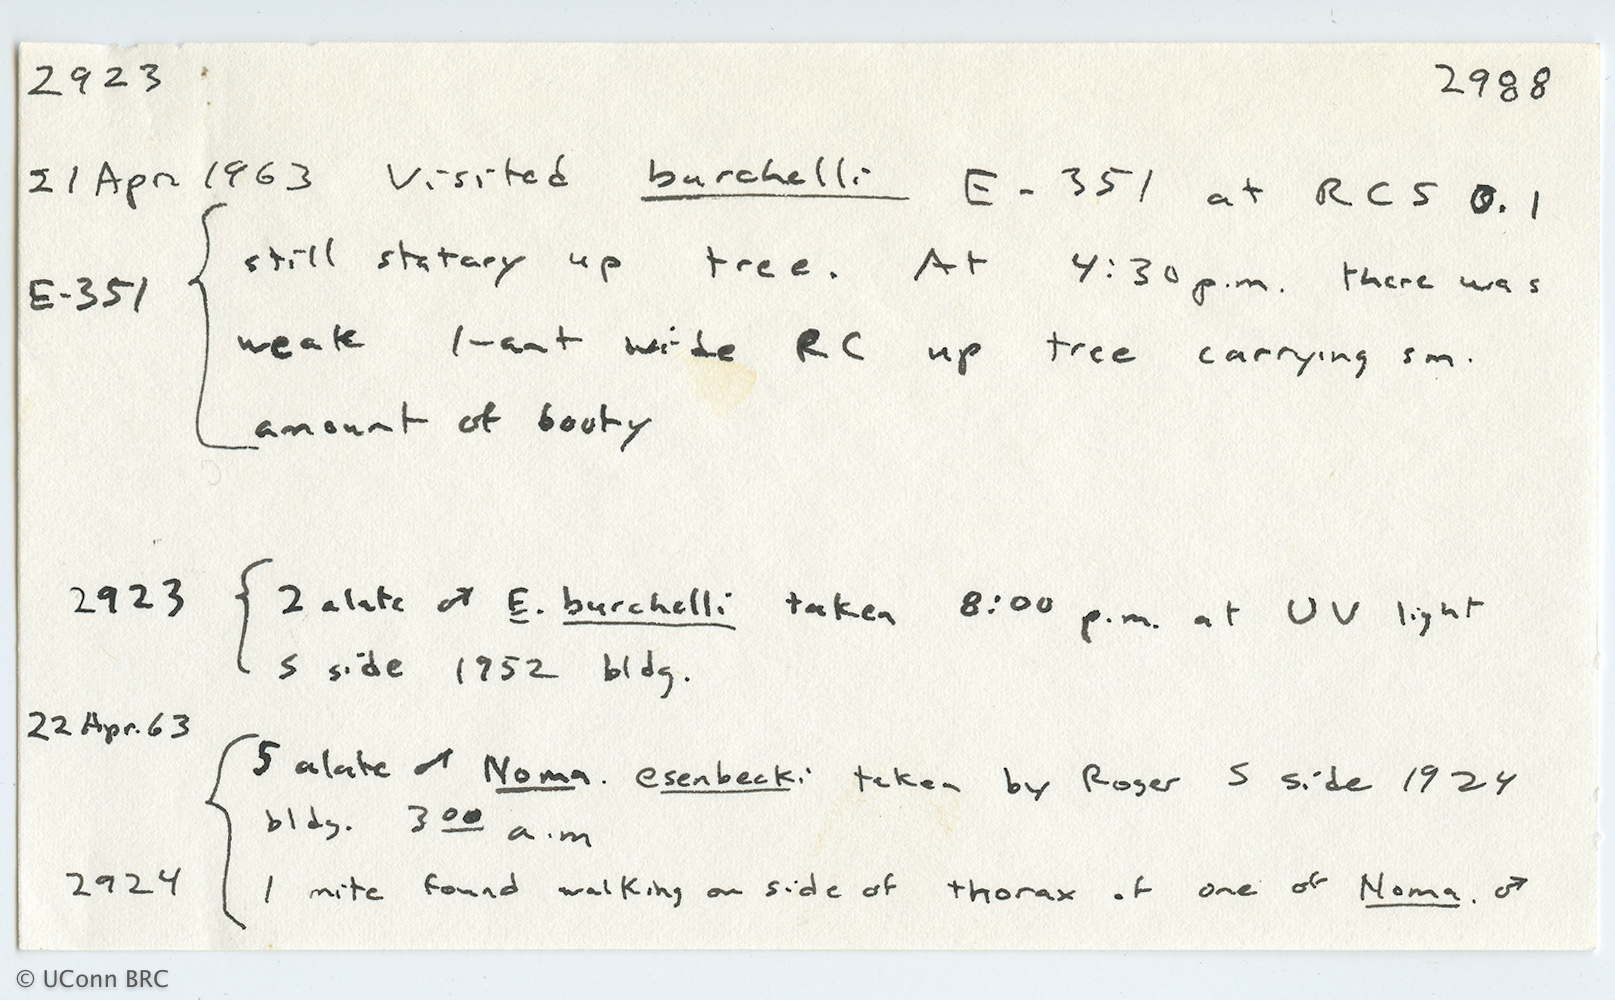 2923 2988
21 Apr 1963 Visited burchelli E-351 at RCS 0.1
still statary up tree. At 4:30 p.m. there was
E-351
weak 1-ant wide RC up tree carrying sm.
amount of booty
2923 2 alate ♂ E. burchelli taken 8:00 p.m. at UV light
S side 1952 bldg.
22 Apr. 63
5 alate ♂ Noma. esenbecki taken by Roger S side 1924
bldg. 3 00 a.m
2924 1 mite found walking on side of thorax of one of Noma. ♂
© UConn BRC